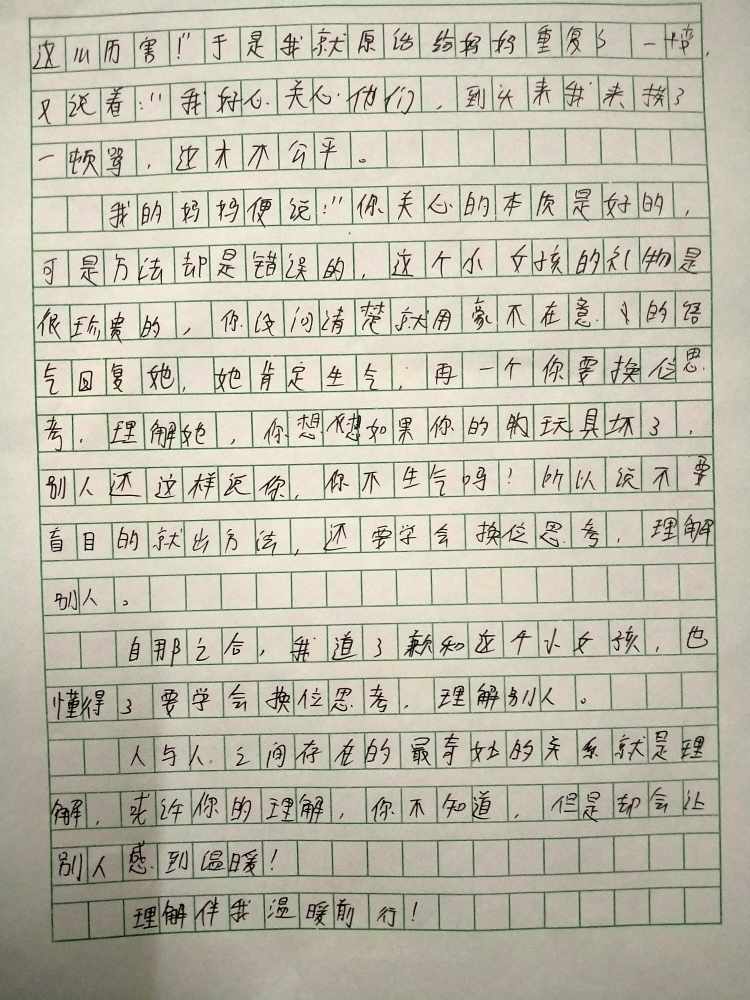 这么厉害!"于是我就原话给妈妈重复了一遍,
又说着:"我好心关心他们,到头来我来挨了
一顿骂,这才不公平。
我的妈妈便说:"你关心的本质是好的,
可是方法却是错误的,这个小女孩的礼物是
很珍贵的,你没问清楚就用豪不在意的语
气回复她,她肯定生气;再一个你要换位思
考,理解她,你想想如果你的玩具坏了,
别人还这样说你,你不生气吗!所以说不要
盲目的就出方法,还要学会换位思考,理解
别人。
自那之后,我道了歉和这个小女孩,也
懂得了要学会换位思考,理解别人。
人与人之间存在的最奇妙的关系就是理
解,或许你的理解,你不知道,但是却会让
别人感到温暖!
理解伴我温暖前行!